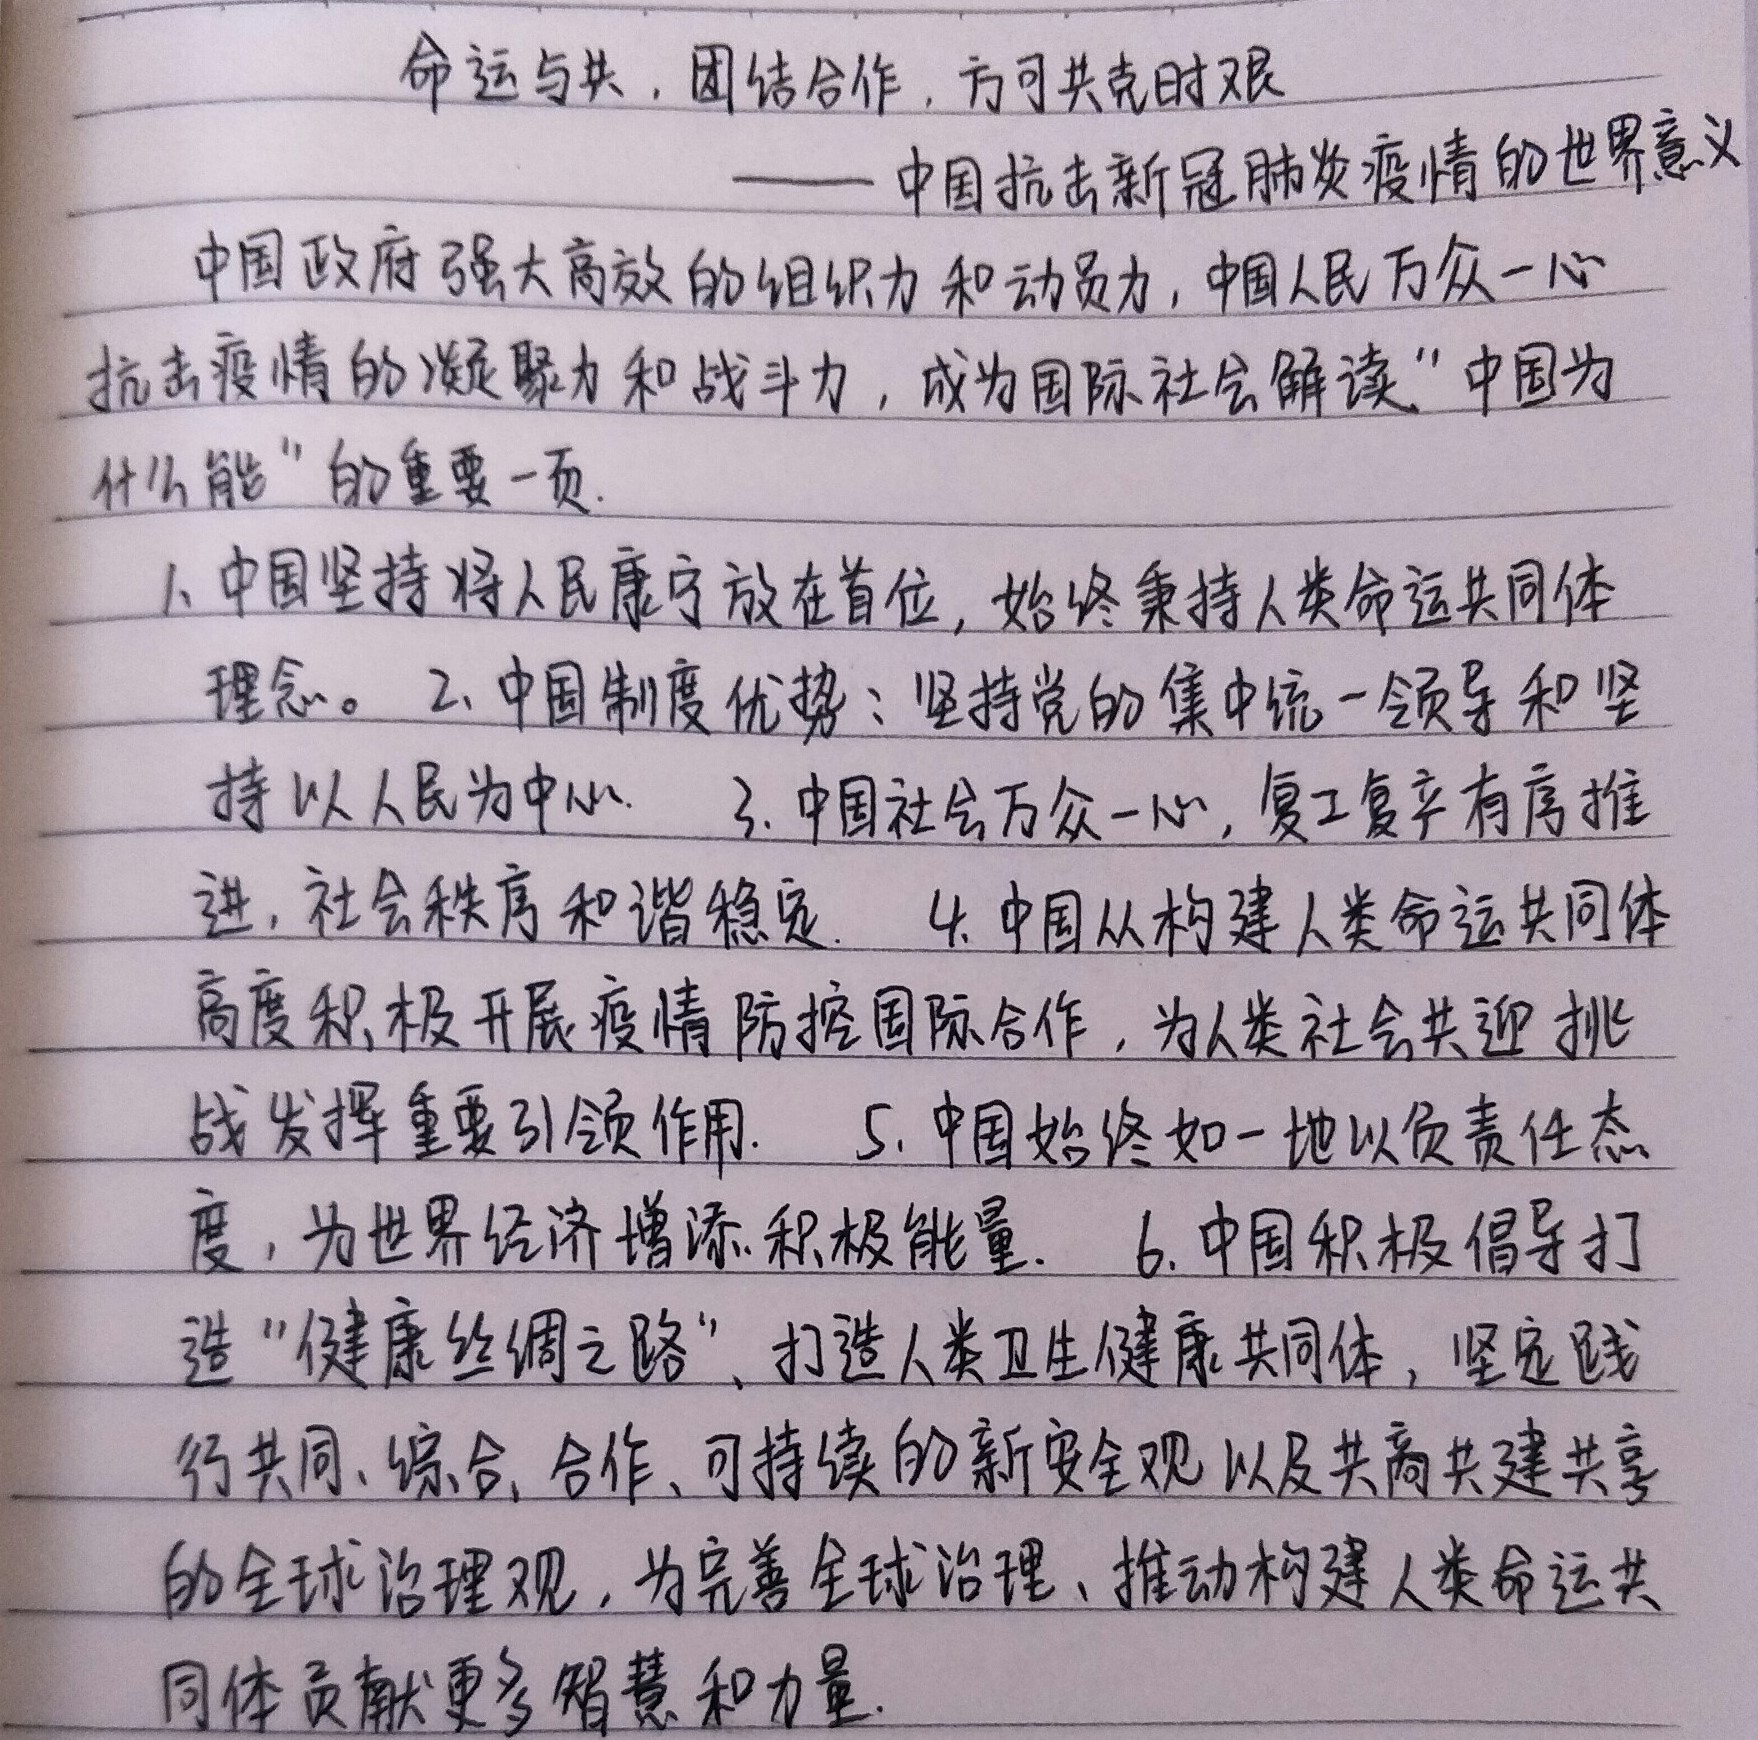 命运与共，团结合作，方可共克时艰
——中国抗击新冠肺炎疫情的世界意义
中国政府强大高效的组织力和动员力，中国人民万众一心
抗击疫情的凝聚力和战斗力，成为国际社会解读“中国为
什么能”的重要一页.
1、中国坚持将人民康宁放在首位，始终秉持人类命运共同体
理念。 2、中国制度优势：坚持党的集中统一领导和坚
持以人民为中心. 3.中国社会万众一心，复工复产有序推
进，社会秩序和谐稳定. 4.中国从构建人类命运共同体
高度积极开展疫情防控国际合作，为人类社会共迎挑
战发挥重要引领作用. 5.中国始终如一地以负责任态
度，为世界经济增添积极能量. 6.中国积极倡导打
造“健康丝绸之路”、打造人类卫生健康共同体，坚定践
行共同、综合、合作、可持续的新安全观以及共商共建共享
的全球治理观，为完善全球治理、推动构建人类命运共
同体贡献更多智慧和力量.